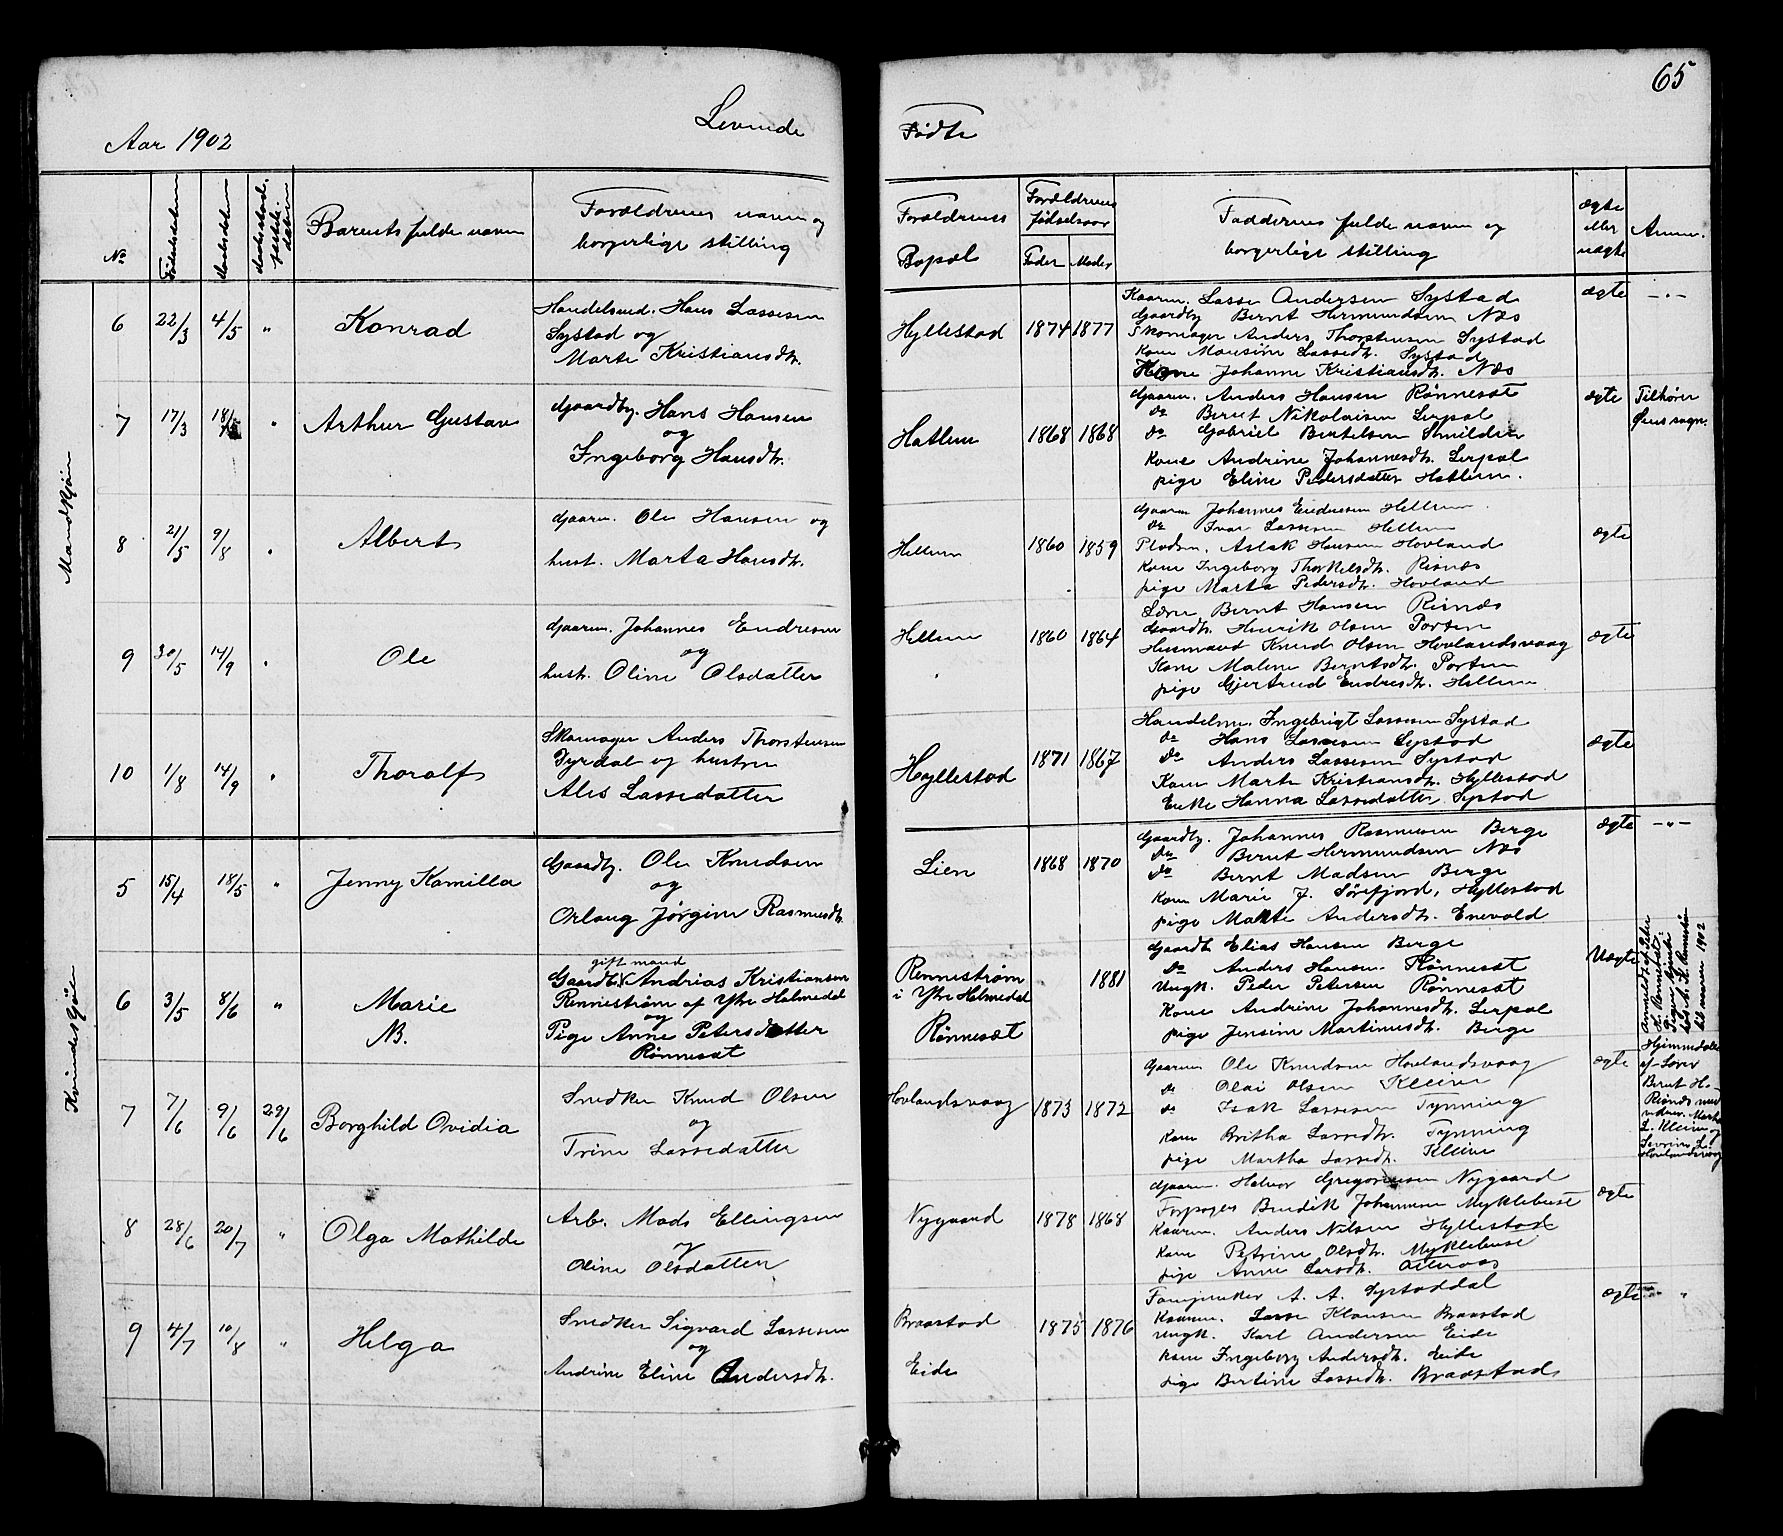 65
Levende
Fødte
Aar 1902
No
Fødselsdatum
Daabsdatum
Barnets fulde navn
Forældrenes navn og
borgerlige stilling
Forældrenes
Bopæl
Forældrenes
fødselsaar
Fader
Moder
Faddernes fulde navn og
borgerlige stilling
ægte
eller
uægte
Anm.
Mandkjön
6
22/3
4/5
"
Konrad
Handelsmd. Hans Lassesen
Systad og
Marte Kristiansdtr.
Hyllestad
1874
1877
Kaarm. Lasse Andersen Systad
Gaardbr. Bernt Hermundsen Næs
Skomager Anders Thorstensen Systad
Kone Monsine Lassedtr. Systad
Kone Johanne Kristiansdtr. Næs
ægte
-"-
7
17/3
Arthur Gustav
Gaardbr. Hans Hansen
og
Ingeborg Hansdtr.
Hatlem
1868
1868
Gaarm. Anders Hansen Rønneset
do Bernt Nikolaisen Lerpol
do Gabriel Bertelsen
Kone Andrine Johannesdtr. Lerpol
pige Eline Pedersdatter Hatlem.
ægte
Tilhører
sogn.
8
21/5
9/8
"
Albert
Gaarm. Ole Hansen og
hust. Marta Hansdtr.
Hellem
1860
1859
Gaarm Johannes Endresen Hellem
do Ivar Lassesen Hellem
Pladsm. Aslak Hansen Hovland
Kone Ingeborg Thorkelsdtr. Risnes
pige Marta Pedersdtr. Hovland
ægte
9
30/5
14/9
"
Ole
Gaarm. Johannes Endresen
og
hust. Oline Olsdatter
Hellem
1860
1864
Lærer Bernt Hansen Risnes
Gaardbr. Henrik Olsen Porten
Husmand Knud Olsen Hovlandsvaag
Kone Malene Berntsdtr. Porten
pige Gjertrud Endresdtr. Hellem
ægte
10
1/8
14/9
"
Thoralf
Skomager Anders Thorstensen
Tyrdal og hustru
Ales Lassedatter
Hyllestad
1871
1867
Handelsm. Ingebrigt Lassesen Systad
do Hans Lassesen Systad
do Anders Lassesen Systad
Kone Marte Kristiansdtr. Hyllestad
Enke Hanna Lassedatter Systad
ægte
Kvindekjön
5
15/4
18/5
"
Jenny Kamilla
Gaardbr. Ole Knudsen
og
Orlaug Jørgine Rasmusdtr.
Lien
1868
1870
Gaardbr. Johannes Rasmussen Berge
Do Bernt Hermundsen Næs
Do Bernt Madsen Berge
Kone Marie J. Sørefjord, Hyllestad
pige Marte Andersdtr. Enevold
ægte
-"-
6
3/5
8/6
"
Marie
NB.
gift mand
Gaardbr. Andrias Kristiansen
Rennestrøm af Ytre Holmedal
og
Pige Anne Petersdatter
Rønneset
Rennestrøm
i Ytre Holmedal
Rønneset
1881
Gaardb. Elias Hansen Berge
Do Anders Hansen Rønneset
Ungk. Peder Petersen Rønneset
Kone Andrine Johannesdtr. Lerpol
pige Jensine Martinusdtr. Berge
Uægte
7
7/6
9/6
29/6
Borghild Ovidia
Snedker Knud Olsen
og
Trine Lassedatter
Hovlandsvaag
1873
1872
Gaarm Ole Knudsen Hovlandsvaag
do Olai Olsen Kleive
do Isak Lassesen Tynning
Kone Britha Lassedtr. Tynning
pige Martha Lassedtr. Kleive
ægte
Hjemmedøbt
af Lærer
Bernt H.
Risnes
L. Kleiven og
Hovlandsvaag
8
28/6
20/7
"
Olga Mathilde
Arb. Mads Ellingsen
og
Oline Olsdatter
Nygaard
1878
1868
Gaarm. Halvor Gregoriusen Nygaard
Forpagter Bendik Johannesen Myklebust
Kaarm. Anders Nilsen Hyllestad
Kone Petrine Olsdtr. Myklebust
pige Anne Larsdtr.
ægte
9
4/7
10/8
"
Helga
Snedker Sigvard Lassesen
og
Andrine Eline Andersdtr.
Braastad
Eide
1875
1876
A. A. Systaddal
Kaarm. Lasse Klausen Braastad
Ungk. Karl Andersen Eide
Kone Ingeborg Andersdtr. Eide
pige Bertine Lassedtr. Braastad
ægte
"